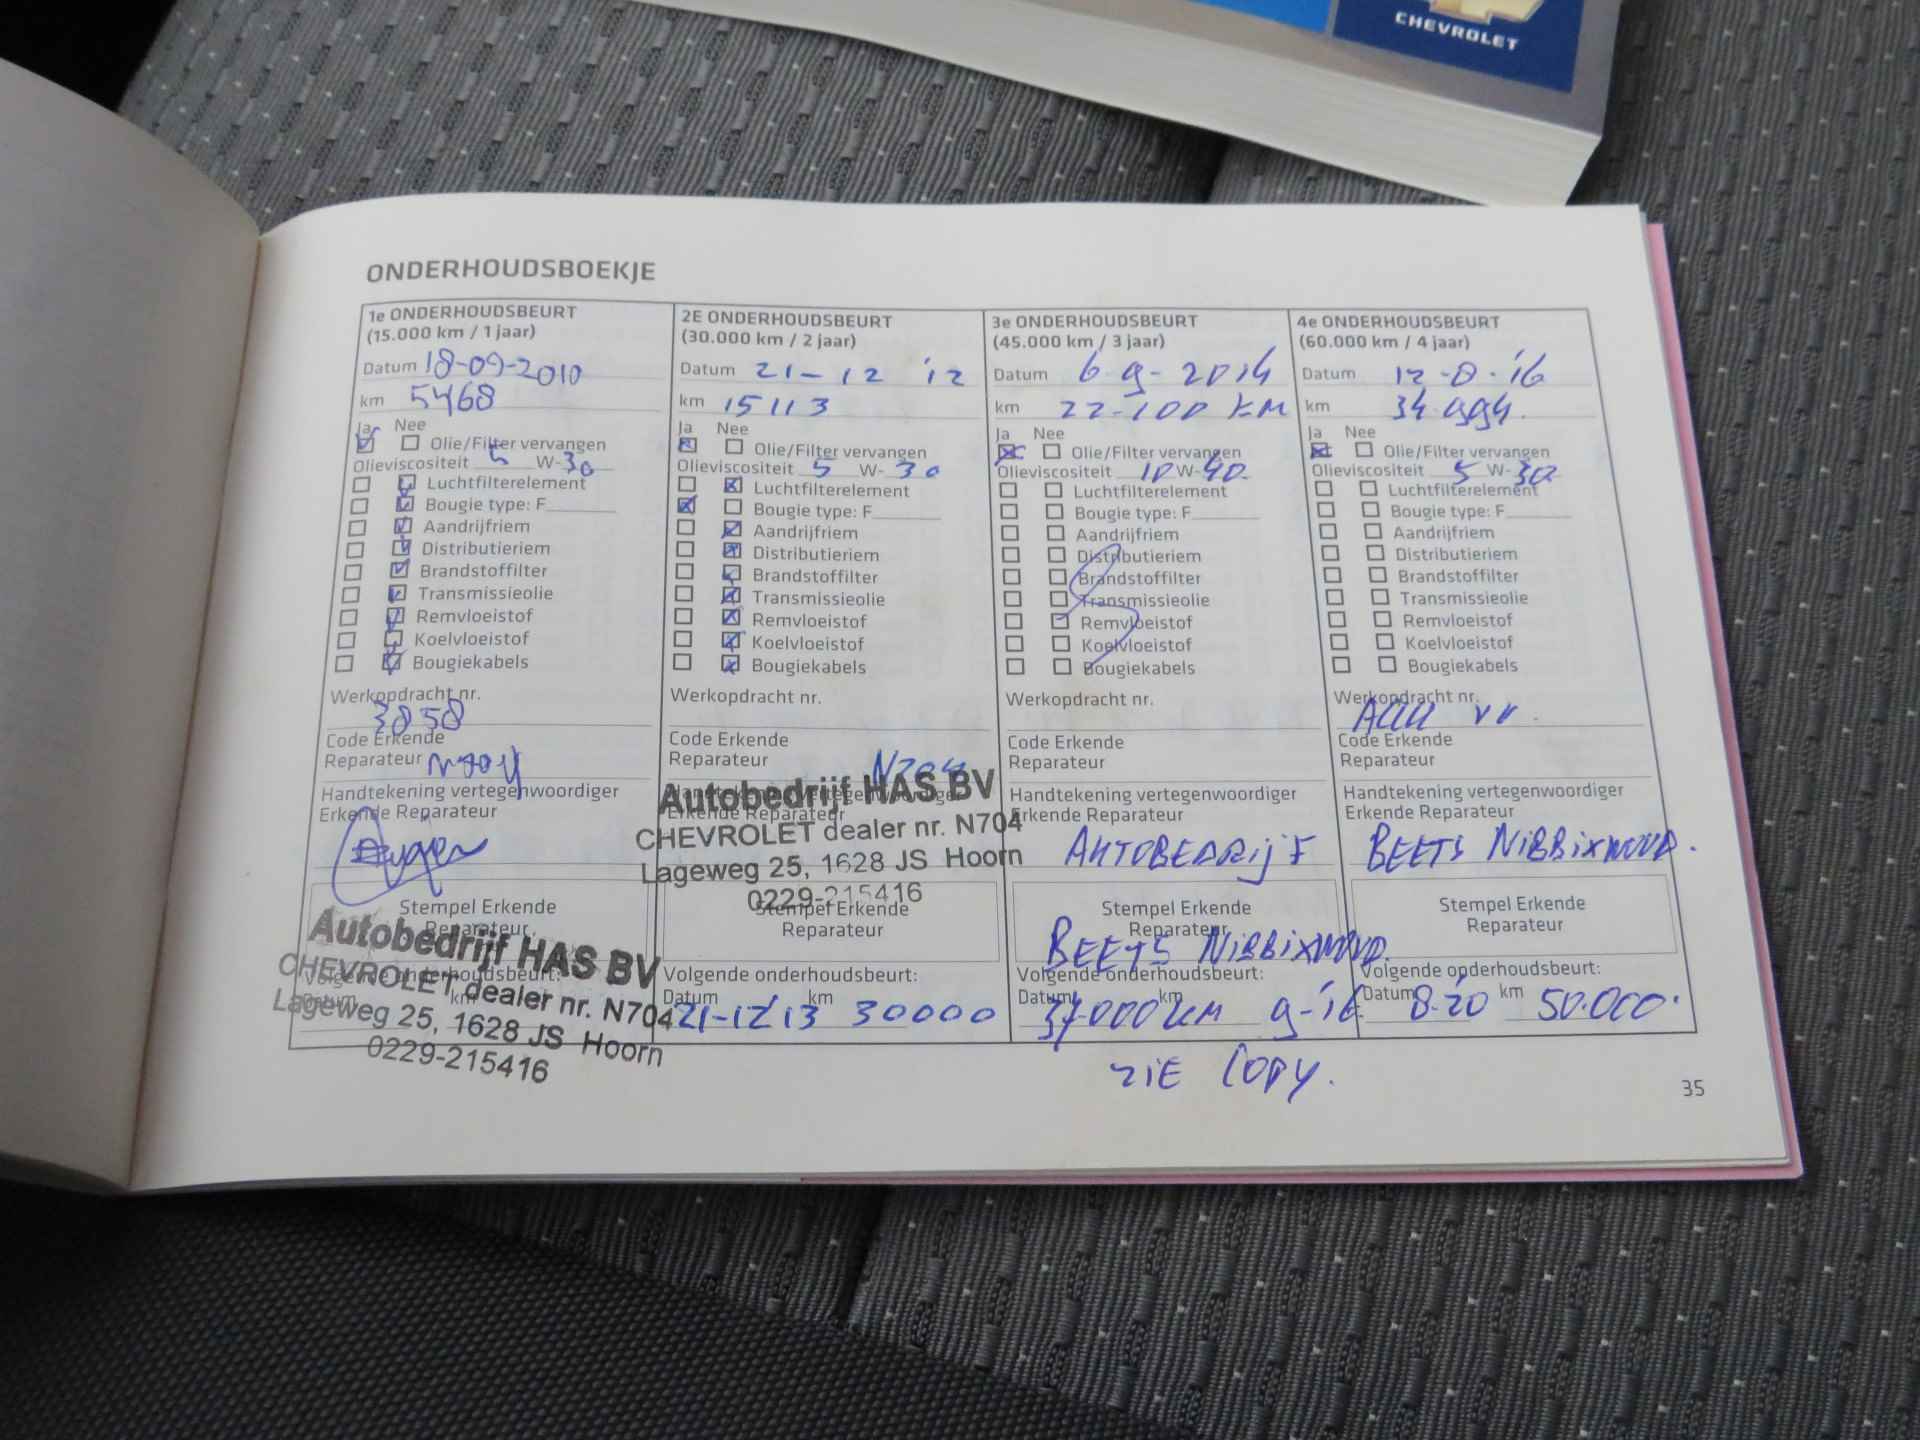 CHEVROLET
ONDERHOUDSBOEKJE
1e ONDERHOUDSBEURT
(15.000 km / 1 jaar)
Datum 18-09-2010
km 5468
Ja Nee
Olie/Filter vervangen
Olieviscositeit 5 W-30
Luchtfilterelement
Bougie type: F
Aandrijfriem
Distributieriem
Brandstoffilter
Transmissieolie
Remvloeistof
Koelvloeistof
Bougiekabels
Werkopdracht nr.
3858
Code Erkende
Reparateur N704
Handtekening vertegenwoordiger
Erkende Reparateur
Stempel Erkende
Reparateur
Autobedrijf HAS BV
CHEVROLET dealer nr. N704
Lageweg 25, 1628 JS Hoorn
0229-215416
Volgende onderhoudsbeurt:
Datum km
2E ONDERHOUDSBEURT
(30.000 km / 2 jaar)
Datum 21-12 '12
km 15113
Ja Nee
Olie/Filter vervangen
Olieviscositeit 5 W-30
Luchtfilterelement
Bougie type: F
Aandrijfriem
Distributieriem
Brandstoffilter
Transmissieolie
Remvloeistof
Koelvloeistof
Bougiekabels
Werkopdracht nr.
Code Erkende
Reparateur N704
Handtekening vertegenwoordiger
Erkende Reparateur
Autobedrijf HAS BV
CHEVROLET dealer nr. N704
Lageweg 25, 1628 JS Hoorn
0229-215416
Stempel Erkende
Reparateur
Volgende onderhoudsbeurt:
Datum km
21-12 13 30000
3e ONDERHOUDSBEURT
(45.000 km / 3 jaar)
Datum 6-9-2014
km 22-100 KM
Ja Nee
Olie/Filter vervangen
Olieviscositeit 10 W-40
Luchtfilterelement
Bougie type: F
Aandrijfriem
Distributieriem
Brandstoffilter
Transmissieolie
Remvloeistof
Koelvloeistof
Bougiekabels
Werkopdracht nr.
Code Erkende
Reparateur
Handtekening vertegenwoordiger
Erkende Reparateur
AUTOBEDRIJF
Stempel Erkende
Reparateur
BEETS NIBBIXWOUD.
Volgende onderhoudsbeurt:
Datum km
37.000 KM 9-'16
ZIE COPY.
4e ONDERHOUDSBEURT
(60.000 km / 4 jaar)
Datum 12-8-'16
km 34.994.
Ja Nee
Olie/Filter vervangen
Olieviscositeit 5 W-30
Luchtfilterelement
Bougie type: F
Aandrijfriem
Distributieriem
Brandstoffilter
Transmissieolie
Remvloeistof
Koelvloeistof
Bougiekabels
Werkopdracht nr.
Code Erkende
Reparateur
Handtekening vertegenwoordiger
Erkende Reparateur
BEETS NIBBIXWOUD.
Stempel Erkende
Reparateur
Volgende onderhoudsbeurt:
Datum 8-'20 km 50.000.
35